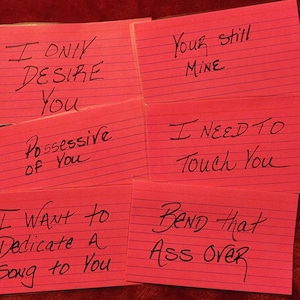 I ONLY
DESIRE
YOU
Your still
MINE
Possessive
of You
I NEED TO
Touch You
I WANT to
Dedicate A
Song to You
BEND that
ASS OVER